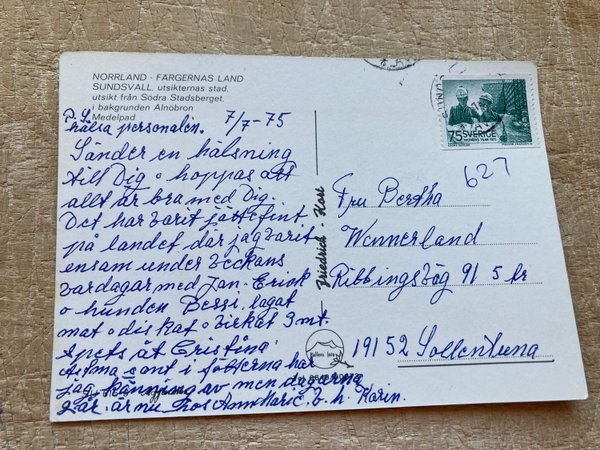 NORRLAND - FÄRGERNAS LAND
SUNDSVALL, utsikternas stad,
utsikt från Södra Stadsberget,
i bakgrunden Alnöbron
Medelpad
P.S.
hälsa personalen.
7/7-75
Sänder en hälsning
till Dig o hoppas att
allt är bra med Dig.
Det har varit jättefint
på landet där jag varit
ensam under veckans
vardagar med Jan-Erick
o hunden Bessi, lagat
mat o diskat o virkat 3 mt.
spets åt Cristina
Astma samt i fötterna har
jag känning av men dagarna
går. är nu hos AnnMarie. V. h. Karin.
Friedrich - Kost
75 SVERIGE
627
Fru Bertha
Wennerland
Ribbingsväg 91 5 tr
19152 Sollentuna